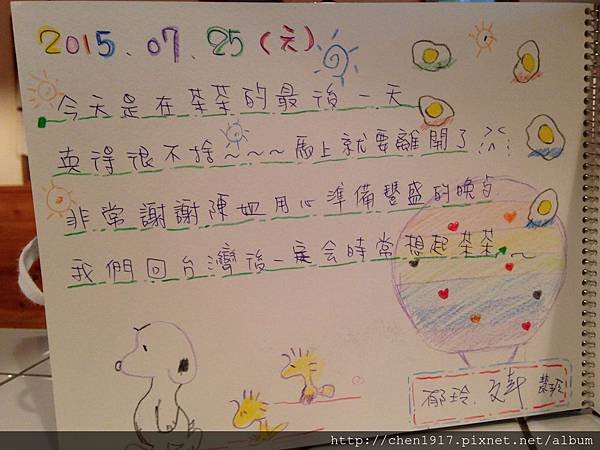 2015.07.25(六)
今天是在茶茶的最後一天
真得很不捨~~~馬上就要離開了
非常謝謝陳姐用心準備豐盛的晚点
我們回台灣後一定会時常想起茶茶~
郁玲、文軒
http://chen1917.pixnet.net/album